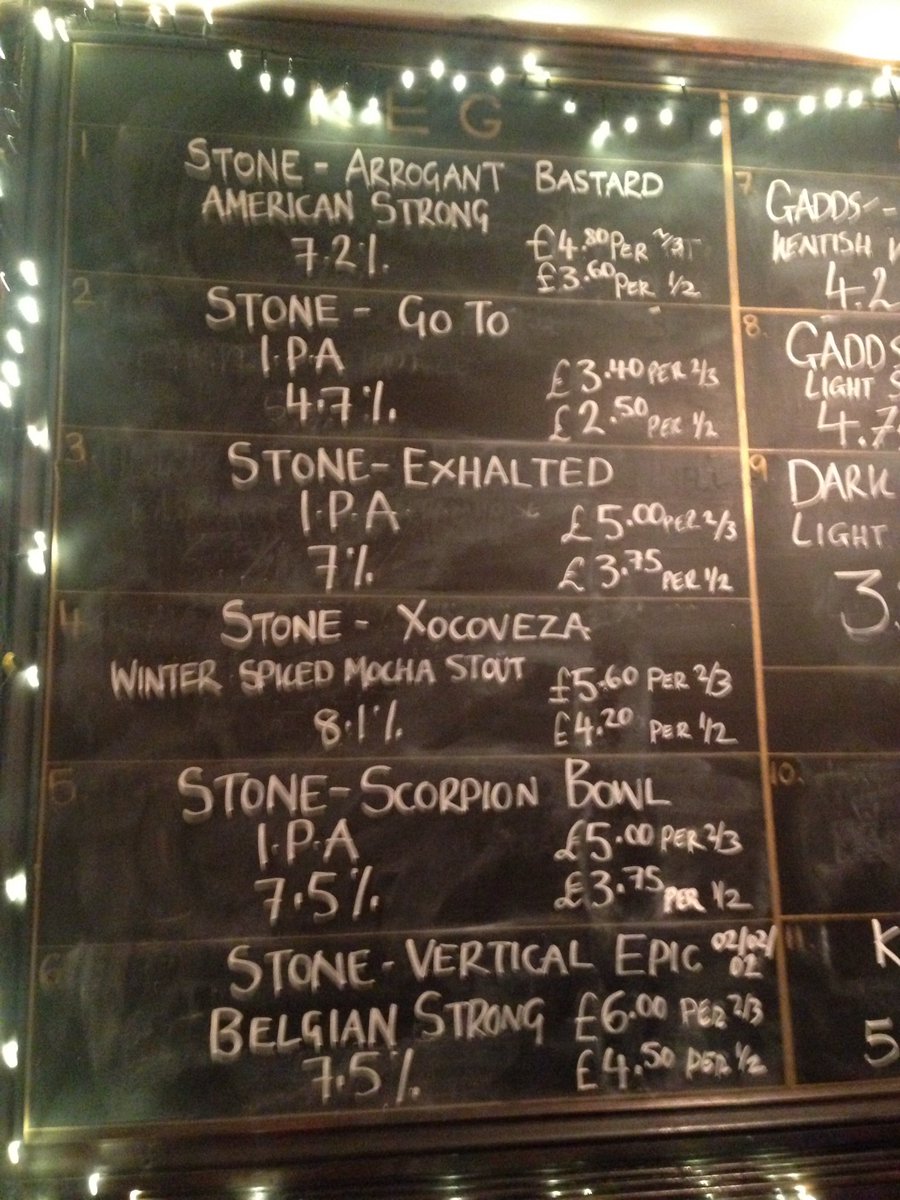 KEG
1
STONE - ARROGANT BASTARD
AMERICAN STRONG
7.2%
£4.80 PER 2/3
£3.60 PER 1/2
2.
STONE - GO TO
I.P.A
4.7%
£3.40 PER 2/3
£2.50 PER 1/2
3.
STONE - EXHALTED
I.P.A
7%
£5.00 PER 2/3
£3.75 PER 1/2
4.
STONE - XOCOVEZA
WINTER SPICED MOCHA STOUT
8.1%
£5.60 PER 2/3
£4.20 PER 1/2
5.
STONE - SCORPION BOWL
I.P.A
7.5%
£5.00 PER 2/3
£3.75 PER 1/2
6.
STONE - VERTICAL EPIC 02/02/02
BELGIAN STRONG
7.5%
£6.00 PER 2/3
£4.50 PER 1/2
7.
GADDS -
KENTISH
4.2
8.
GADDS
LIGHT
4.7
9
DARK
LIGHT
3.
10.
11.
K
5